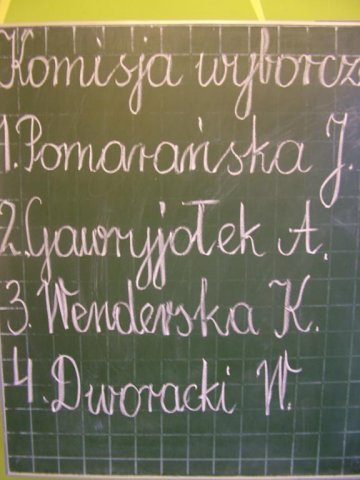 Komisja wyborcz
1. Pomarańska J.
2. Gawryjołek A.
3. Wenderska K.
4. Dworacki W.